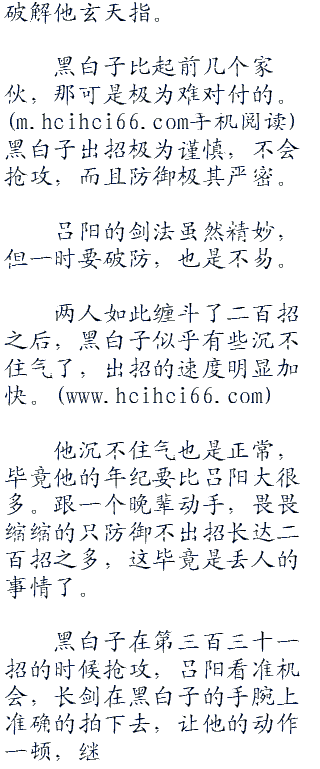 破解他玄天指。
黑白子比起前几个家
伙，那可是极为难对付的。
(m.hcihci66.com手机阅读)
黑白子出招极为谨慎，不会
抢攻，而且防御极其严密。
吕阳的剑法虽然精妙，
但一时要破防，也是不易。
两人如此缠斗了二百招
之后，黑白子似乎有些沉不
住气了，出招的速度明显加
快。(www.hcihci66.com)
他沉不住气也是正常，
毕竟他的年纪要比吕阳大很
多。跟一个晚辈动手，畏畏
缩缩的只防御不出招长达二
百招之多，这毕竟是丢人的
事情了。
黑白子在第三百三十一
招的时候抢攻，吕阳看准机
会，长剑在黑白子的手腕上
准确的拍下去，让他的动作
一顿，继